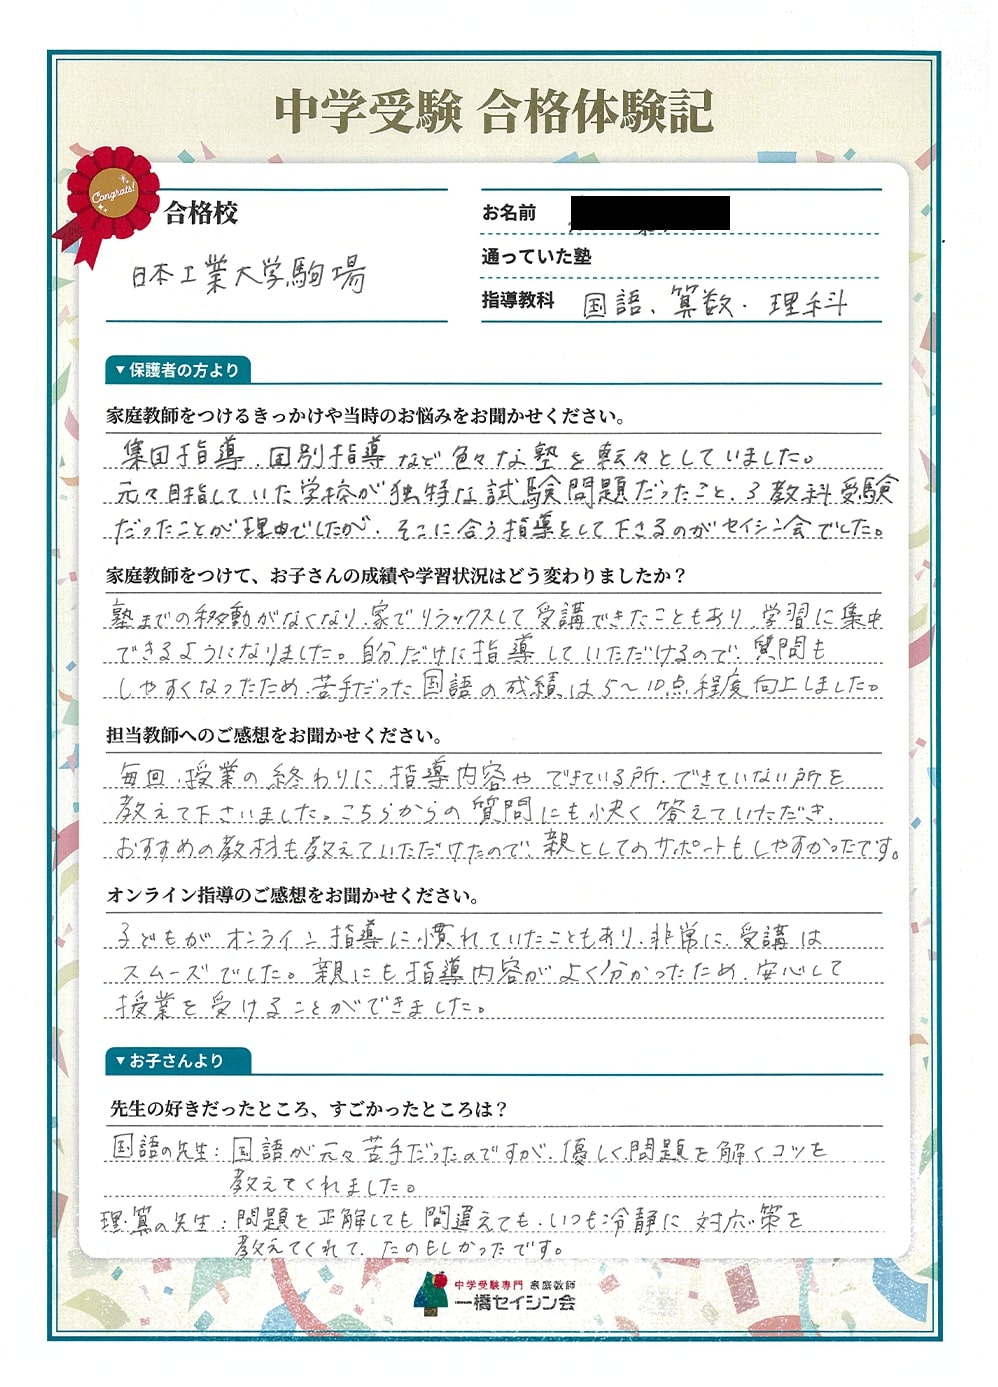 中学受験 合格体験記
Congrats!
合格校
日本工業大学駒場
お名前
通っていた塾
指導教科 国語、算数、理科
▼保護者の方より
家庭教師をつけるきっかけや当時のお悩みをお聞かせください。
集団指導、個別指導など色々な塾を転々としていました。
元々目指していた学校が独特な試験問題だったこと、3教科受験
だったことが理由でしたが、そこに合う指導をして下さるのがセイシン会でした。
家庭教師をつけて、お子さんの成績や学習状況はどう変わりましたか？
塾までの移動がなくなり、家でリラックスして受講できたこともあり、学習に集中
できるようになりました。自分だけに指導していただけるので、質問も
しやすくなったため、苦手だった国語の成績は5〜10点程度向上しました。
担当教師へのご感想をお聞かせください。
毎回、授業の終わりに、指導内容やできている所、できていない所を
教えて下さいました。こちらからの質問にも快く答えていただき、
おすすめの教材も教えていただけたので、親としてのサポートもしやすかったです。
オンライン指導のご感想をお聞かせください。
子どもがオンライン指導に慣れていたこともあり、非常に受講は
スムーズでした。親にも指導内容がよく分かったため、安心して
授業を受けることができました。
▼お子さんより
先生の好きだったところ、すごかったところは？
国語の先生：国語が元々苦手だったのですが、優しく問題を解くコツを
教えてくれました。
理・算の先生：問題を正解しても間違えても、いつも冷静に対応策を
教えてくれて、たのもしかったです。
中学受験専門 家庭教師
一橋セイシン会